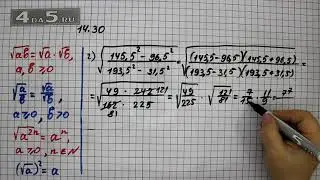 4 da 5 .ru
14.30
√ab = √a · √b,
a, b ≥ 0
√(a/b) = √a/√b,
a ≥ 0, b > 0
√a²ⁿ = aⁿ,
a ≥ 0, n ∈ N
(√a)² = a
2) √((145,5² − 96,5²)/(193,5² − 31,5²)) = √((145,5−96,5)(145,5+96,5)/((193,5−31,5)(193,5+31,5))) =
= √((49 · 242 121)/(162 81 · 225)) = √(49/225) · √(121/81) = 7/15 · 11/9 = 77